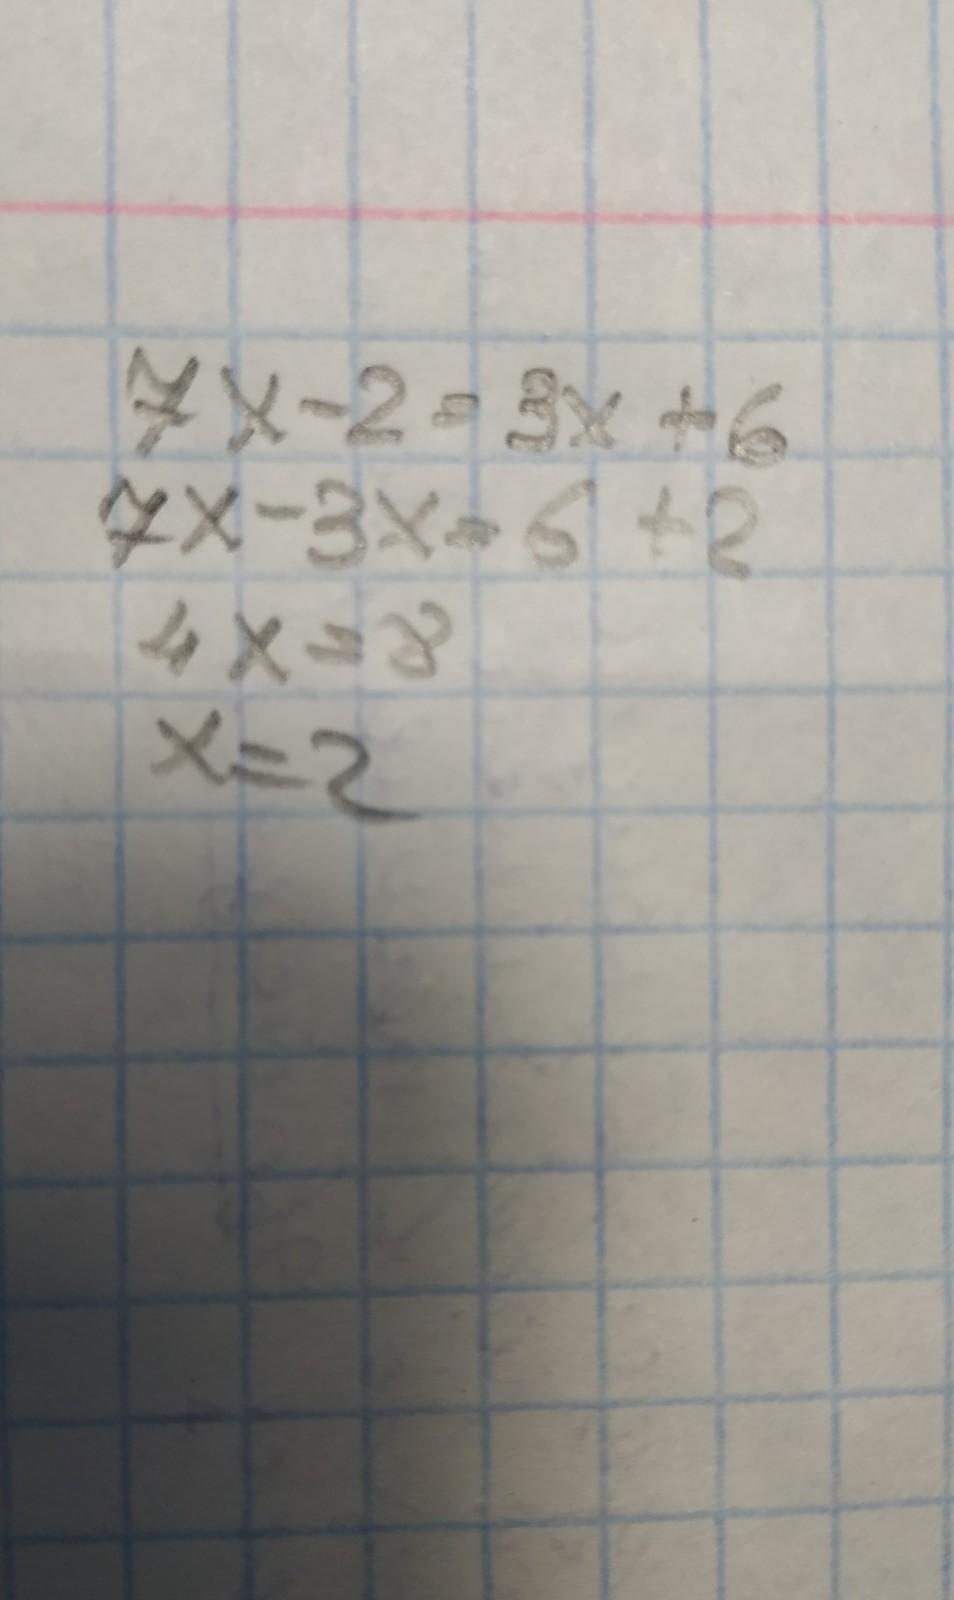 7x-2=3x+6
7x-3x=6+2
4x=8
x=2